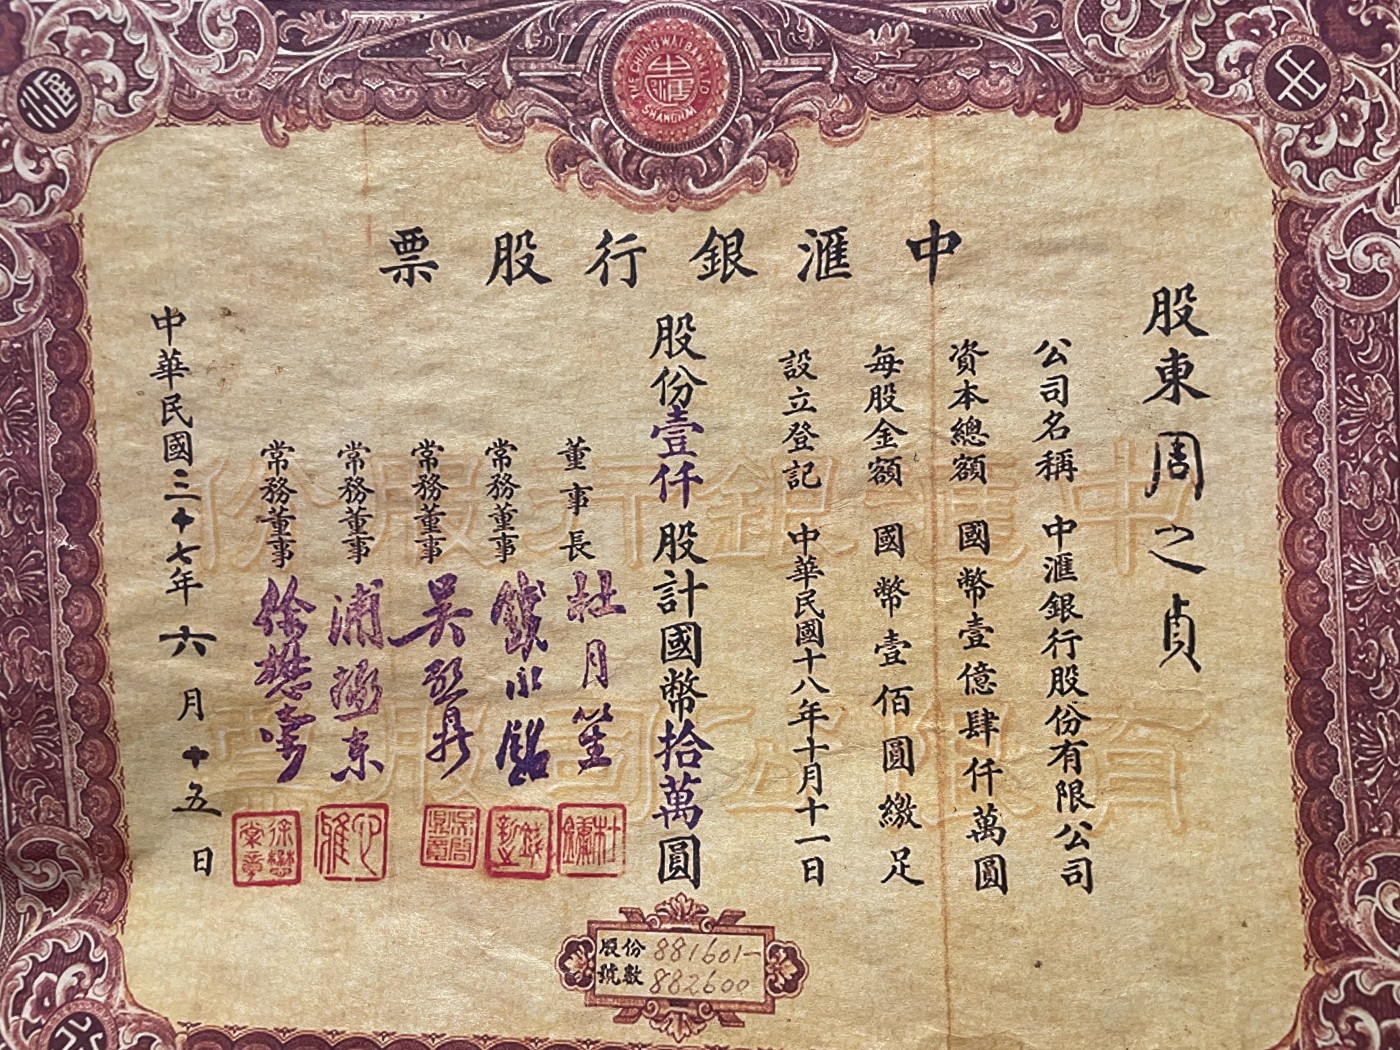 THE CHUNG WAI BANK LTD
中滙
SHANGHAI
中
滙
中滙銀行股票
股東周之貞
公司名稱 中滙銀行股份有限公司
資本總額 國幣壹億肆仟萬圓
每股金額 國幣壹佰圓繳足
設立登記 中華民國十八年十月十一日
股份壹仟股計國幣拾萬圓
董事長 杜月笙
常務董事 錢永銘
常務董事 吳啟鼎
常務董事 浦拯東
常務董事 徐懋棠
中華民國三十七年六月十五日
中滙銀行股份
有限公司股票
股份號數 881601-882600